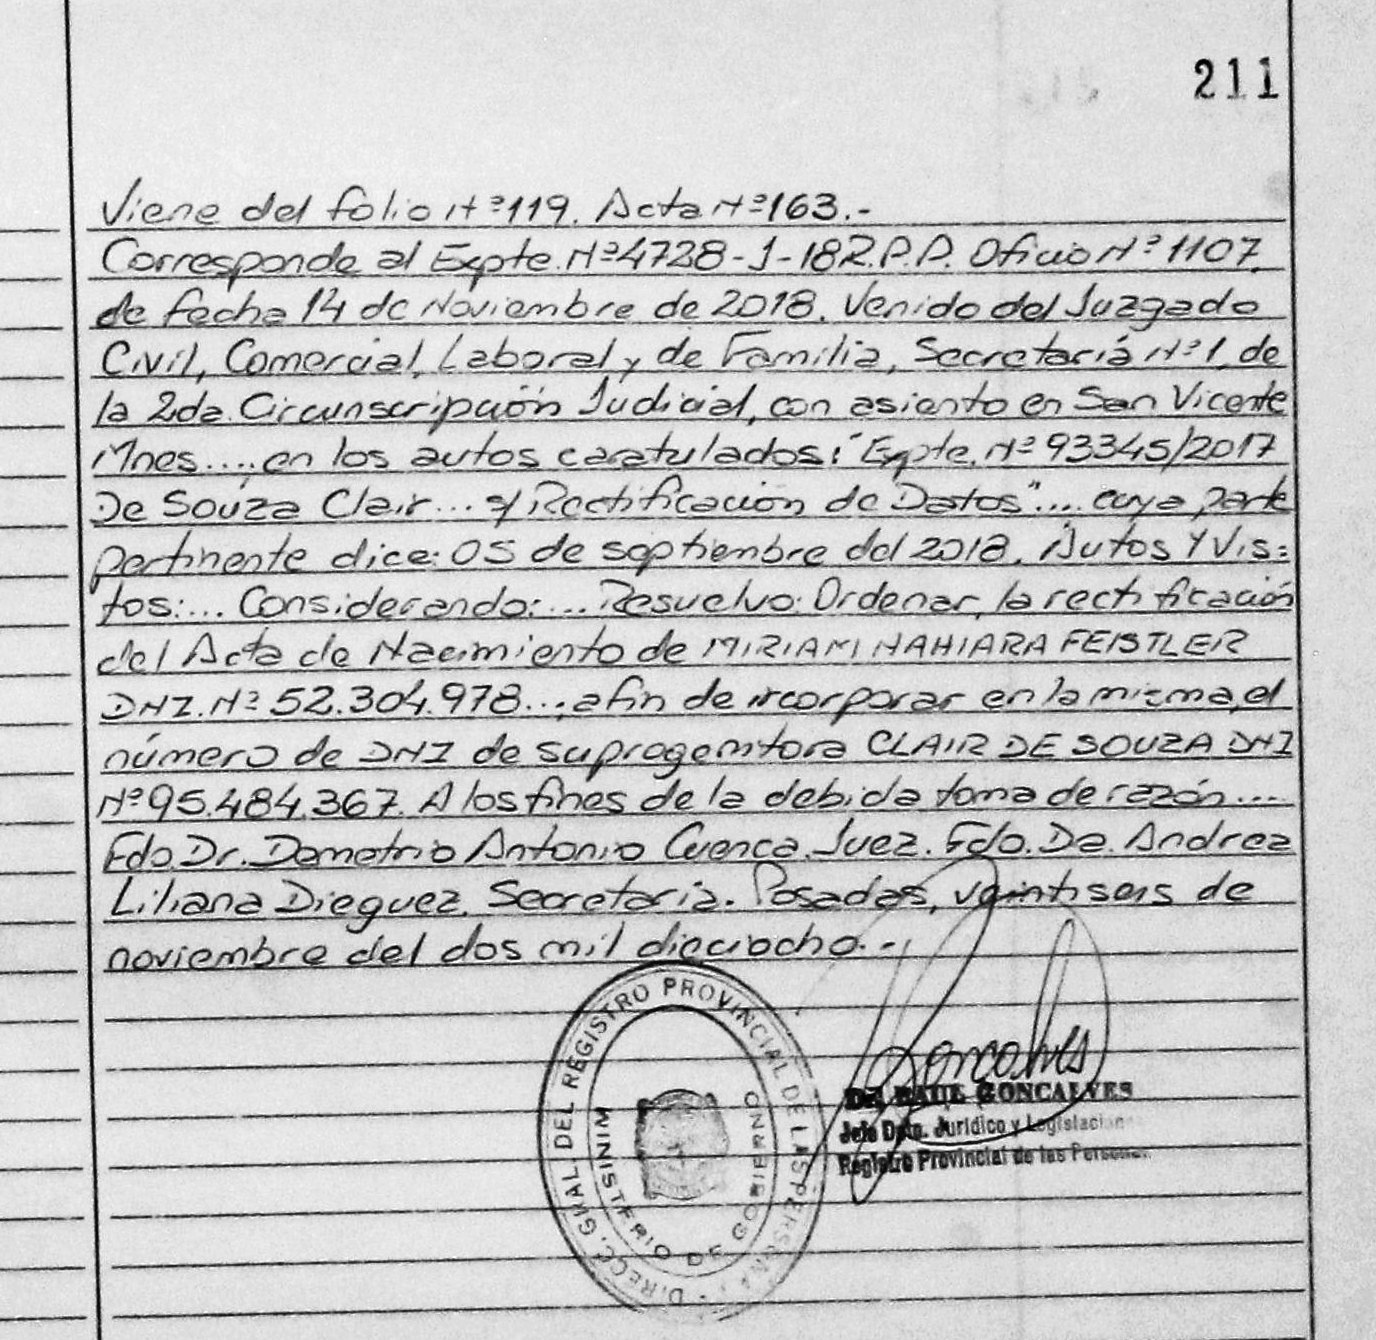 211
Viene del folio Nº119. Acta Nº163.-
Corresponde al Expte. Nº4728-J-18R.P.P. Oficio Nº1107
de fecha 14 de Noviembre de 2018. Venido del Juzgado
Civil, Comercial, Laboral y de Familia, Secretaría Nº1, de
la 2da. Circunscripción Judicial, con asiento en San Vicente
Mnes...., en los autos caratulados: "Expte. Nº93345/2017
De Souza Clair... s/ Rectificación de Datos".... cuya parte
pertinente dice: 05 de septiembre del 2018. Autos Y Vis=
tos:... Considerando:... Resuelvo: Ordenar, la rectificación
del Acta de Nacimiento de MIRIAM NAHIARA FEISTLER
DNI. Nº52.304.978..., afin de incorporar en la misma, el
número de DNI de su progenitora CLAIR DE SOUZA DNI
Nº95.484.367. A los fines de la debida toma de razón....
Fdo. Dr. Demetrio Antonio Cuenca. Juez. Fdo. Da. Andrea
Liliana Dieguez. Secretaria. Posadas, veintiseis de
noviembre del dos mil dieciocho.-
DIRECC. GRAL DEL REGISTRO PROVINCIAL DE LAS PERSONAS
MINISTERIO DE GOBIERNO
Goncalves
Dr. RAUL GONCALVES
Jefe Dpto. Jurídico y Legislacion
Registro Provincial de las Personas